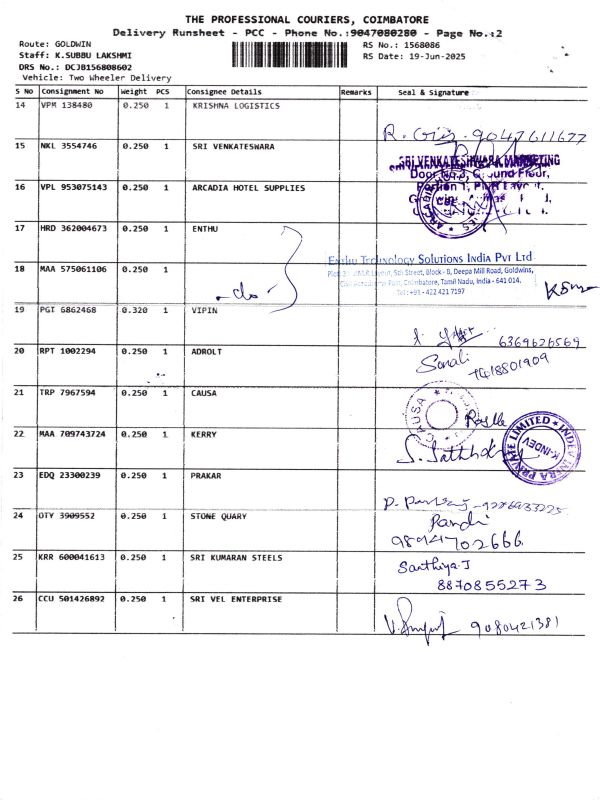 THE PROFESSIONAL COURIERS, COIMBATORE
Delivery Runsheet - PCC - Phone No.:9047080280 - Page No.:2
Route: GOLDWIN
Staff: K.SUBBU LAKSHMI
DRS No.: DCJB156808602
Vehicle: Two Wheeler Delivery
RS No.: 1568086
RS Date: 19-Jun-2025
S No Consignment No Weight PCS Consignee Details Remarks Seal & Signature
14 VPM 138480 0.250 1 KRISHNA LOGISTICS
9047611677
15 NKL 3554746 0.250 1 SRI VENKATESWARA
SRI VENKATESHWARA MARKETING
Door No.3, Ground Floor,
16 VPL 953075143 0.250 1 ARCADIA HOTEL SUPPLIES
17 HRD 362004673 0.250 1 ENTHU
Enthu Technology Solutions India Pvt Ltd
5th Street, Block - B, Deepa Mill Road, Goldwins,
Coimbatore, Tamil Nadu, India - 641 014.
Tel: +91 - 422 421 7197
18 MAA 575061106 0.250 1
do
19 PGT 6862468 0.320 1 VIPIN
6369626569
20 RPT 1002294 0.250 1 ADROLT
Sonali
21 TRP 7967594 0.250 1 CAUSA
CAUSA
22 MAA 709743724 0.250 1 KERRY
INDEV INFRA PRIVATE LIMITED
K-INDEV
23 EDQ 23300239 0.250 1 PRAKAR
24 OTY 3909552 0.250 1 STONE QUARY
Pandi
9894702666
25 KRR 600041613 0.250 1 SRI KUMARAN STEELS
Santhiya.J
8870855273
26 CCU 501426892 0.250 1 SRI VEL ENTERPRISE
9080421381